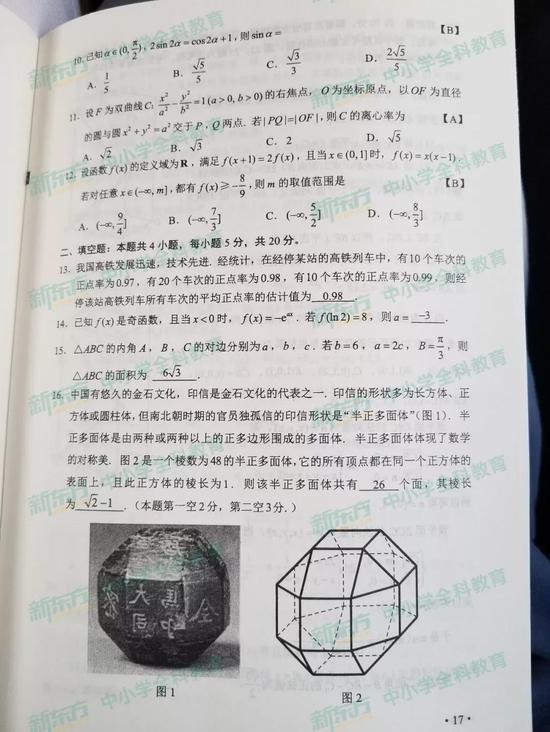 10. 已知α∈(0, π/2), 2sin2α=cos2α+1, 则sinα= 【B】
A. 1/5 B. √5/5 C. √3/3 D. 2√5/5
11. 设F为双曲线C: x²/a² - y²/b² = 1(a>0, b>0)的右焦点, O为坐标原点, 以OF为直径
的圆与圆x²+y²=a²交于P, Q两点. 若|PQ|=|OF|, 则C的离心率为 【A】
A. √2 B. √3 C. 2 D. √5
12. 设函数f(x)的定义域为R, 满足f(x+1)=2f(x), 且当x∈(0,1]时, f(x)=x(x-1).
若对任意x∈(-∞, m], 都有f(x)≥-8/9, 则m的取值范围是 【B】
A. (-∞, 9/4] B. (-∞, 7/3] C. (-∞, 5/2] D. (-∞, 8/3]
二、填空题：本题共4小题，每小题5分，共20分。
13. 我国高铁发展迅速，技术先进. 经统计，在经停某站的高铁列车中，有10个车次的
正点率为0.97，有20个车次的正点率为0.98，有10个车次的正点率为0.99，则经
停该站高铁列车所有车次的平均正点率的估计值为 0.98 .
14. 已知f(x)是奇函数，且当x<0时，f(x)=-e^{ax}. 若f(ln2)=8，则a= -3 .
15. △ABC的内角A，B，C的对边分别为a，b，c. 若b=6，a=2c，B=π/3，则
△ABC的面积为 6√3 .
16. 中国有悠久的金石文化，印信是金石文化的代表之一. 印信的形状多为长方体、正
方体或圆柱体，但南北朝时期的官员独孤信的印信形状是“半正多面体”(图1). 半
正多面体是由两种或两种以上的正多边形围成的多面体. 半正多面体体现了数学
的对称美. 图2是一个棱数为48的半正多面体，它的所有顶点都在同一个正方体的
表面上，且此正方体的棱长为1. 则该半正多面体共有 26 个面，其棱长
为 √2-1 .（本题第一空2分，第二空3分.）
大司馬印
图1 图2
·17·
新东方 中小学全科教育
新东方 中小学全科教育
新东方 中小学全科教育
新东方 中小学全科教育
新东方 中小学全科教育